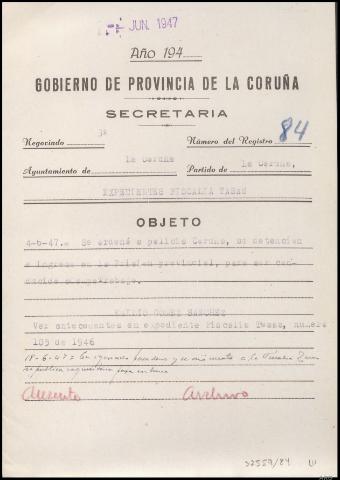 JUN. 1947
Año 194
GOBIERNO DE PROVINCIA DE LA CORUÑA
SECRETARIA
Negociado 3º Número del Registro 84
Ayuntamiento de la Coruña Partido de la Coruña,
EXPEDIENTES FISCALIA TASAS
OBJETO
4-6-47.= Se ordenó a policía Coruña, su detencion
e ingreso en la Prision provincial, para ser con-
ducido campo trabajo.
EMILIO GOMEZ SANCHEZ
Ver antecedentes en expediente Fiscalia Tasas, numero
105 de 1946
18-6-47 = Se y se a la Fiscalia
Ausente Archivo
32559/84